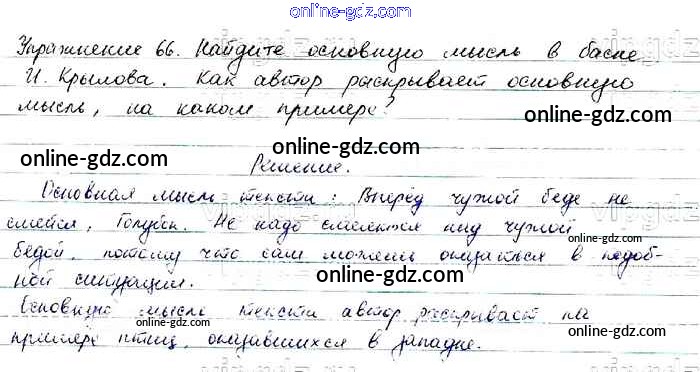 online-gdz.com
Упражнение 66. Найдите основную мысль в басне
И. Крылова. Как автор раскрывает основную
мысль, на каком примере?
online-gdz.com
online-gdz.com
Решение.
online-gdz.com
Основная мысль текста: Вперёд чужой беде не
online-gdz.com
смейся, Голубок. Не надо смеяться над чужой
бедой, потому что сам можешь оказаться в подоб-
online-gdz.com
online-gdz.com
ной ситуации.
Основную мысль текста автор раскрывает на
online-gdz.com
online-gdz.com
примере птиц, оказавшихся в западне.
online-gdz.com